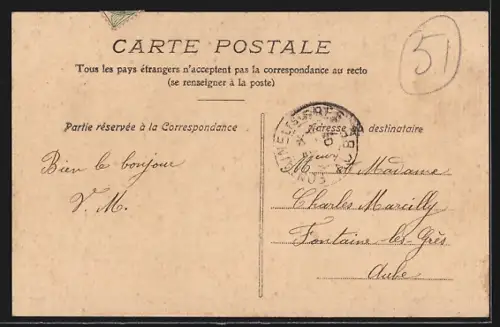 51
CARTE POSTALE
Tous les pays étrangers n'acceptent pas la correspondance au recto
(se renseigner à la poste)
Partie réservée à la Correspondance
Adresse du destinataire
Bien le bonjour
V. M.
Mr et Madame
Charles Marcilly
Fontaine-les-Grès
Aube